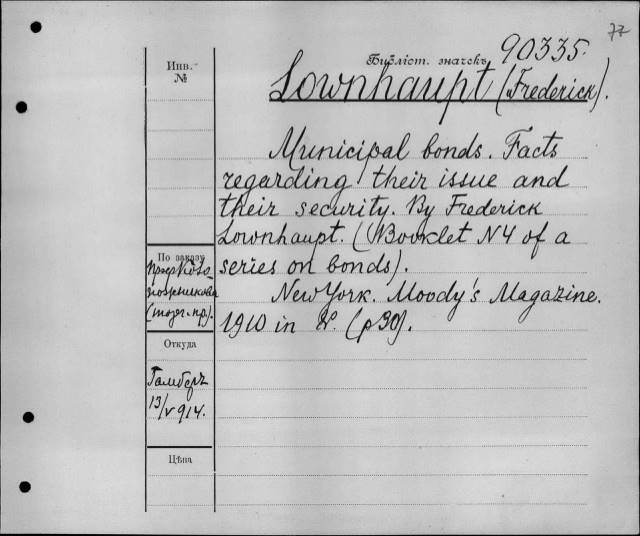 77
Библіот. значекъ 90335.
Инв.
№
Lownhaupt (Frederick).
Municipal bonds. Facts
regarding their issue and
their security. By Frederick
Lownhaupt. (Booklet N4 of a
series on bonds).
New York. Moody's Magazine.
1910 in 8°. (p 30).
По заказу
Откуда
13/V 914.
Цѣна